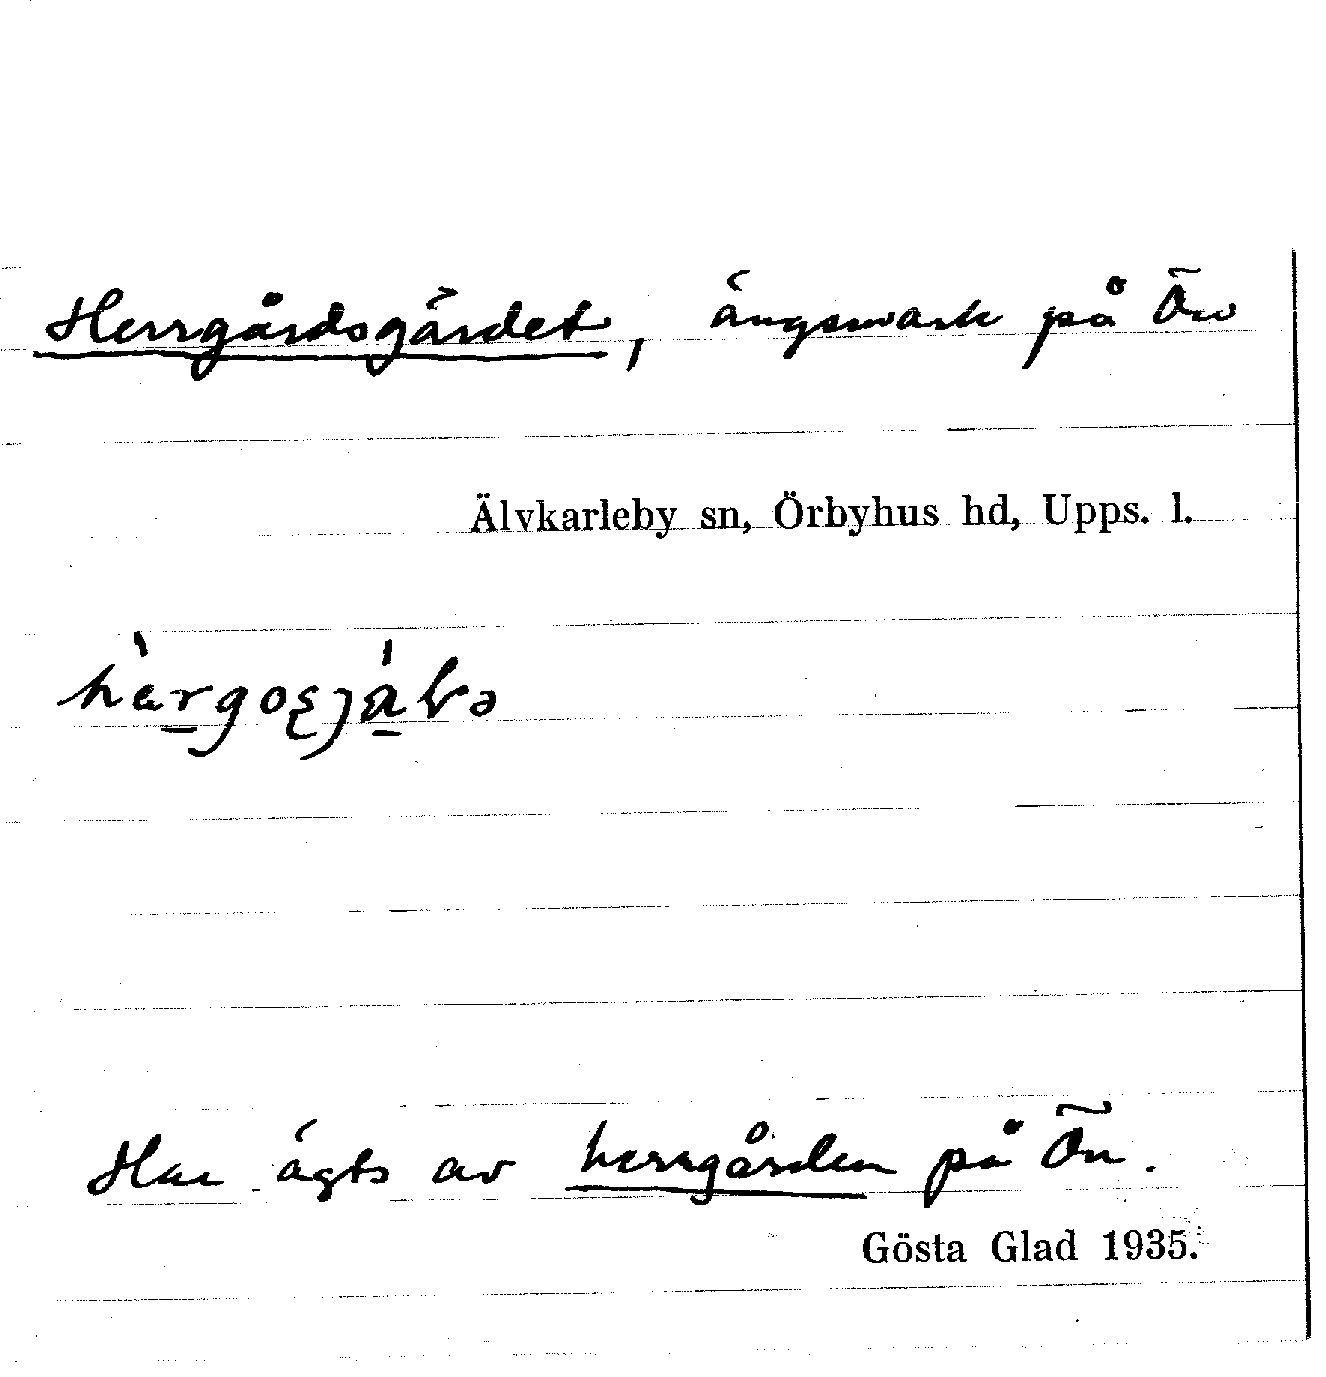 Herrgårdsgärdet, ängsmark på Ön
Älvkarleby sn, Örbyhus hd, Upps. l.
Har ägts av herrgården på Ön.
Gösta Glad 1935.